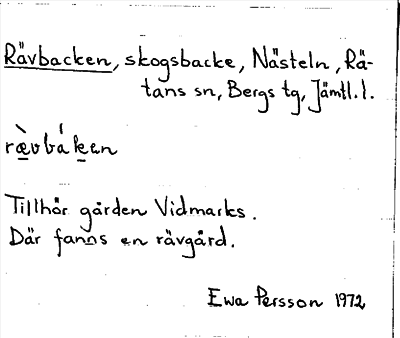 Rävbacken, skogsbacke, Nästeln, Rä-
tans sn, Bergs tg, Jämtl. l.
ræ̀vbáken
Tillhör gården Vidmarks.
Där fanns en rävgård.
Ewa Persson 1972